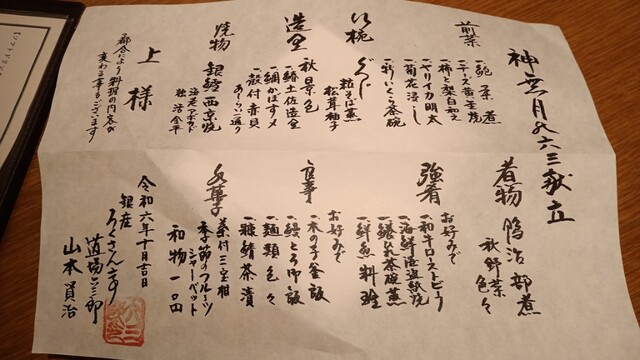 神無月の六三献立
前菜
一、鮑柔煮
一、チーズ黄金焼
一、柿と梨白和え
一、ヤリイカ明太
一、菊花浸し
一、新いくら茶碗
椀
ぐじ
粒そば蒸
松茸柚子
造里
秋景色
一、鰹土佐造里
一、鯛かぼすメ
一、殻付赤貝
あしらい一通り
焼物
銀鱈西京焼
海老アボカド
牡蠣金平
上様
都合により料理の内容が
変わる事もございます
煮物
鴨治部煮
秋野菜
色々
強肴
お好みで
一、和牛ローストビーフ
一、海鮮陶盤焼
一、鱶ひれ茶碗蒸
一、鮮魚料理
食事
お好みで
一、木の子釜飯
一、鰻とろ御飯
一、麺類色々
一、鯖茶漬
水菓子
葉付三宝柑
季節のフルーツ
シャーベット
和物一口
令和六年十月吉日
銀座
ろくさん亭
道場六三郎
山本員治